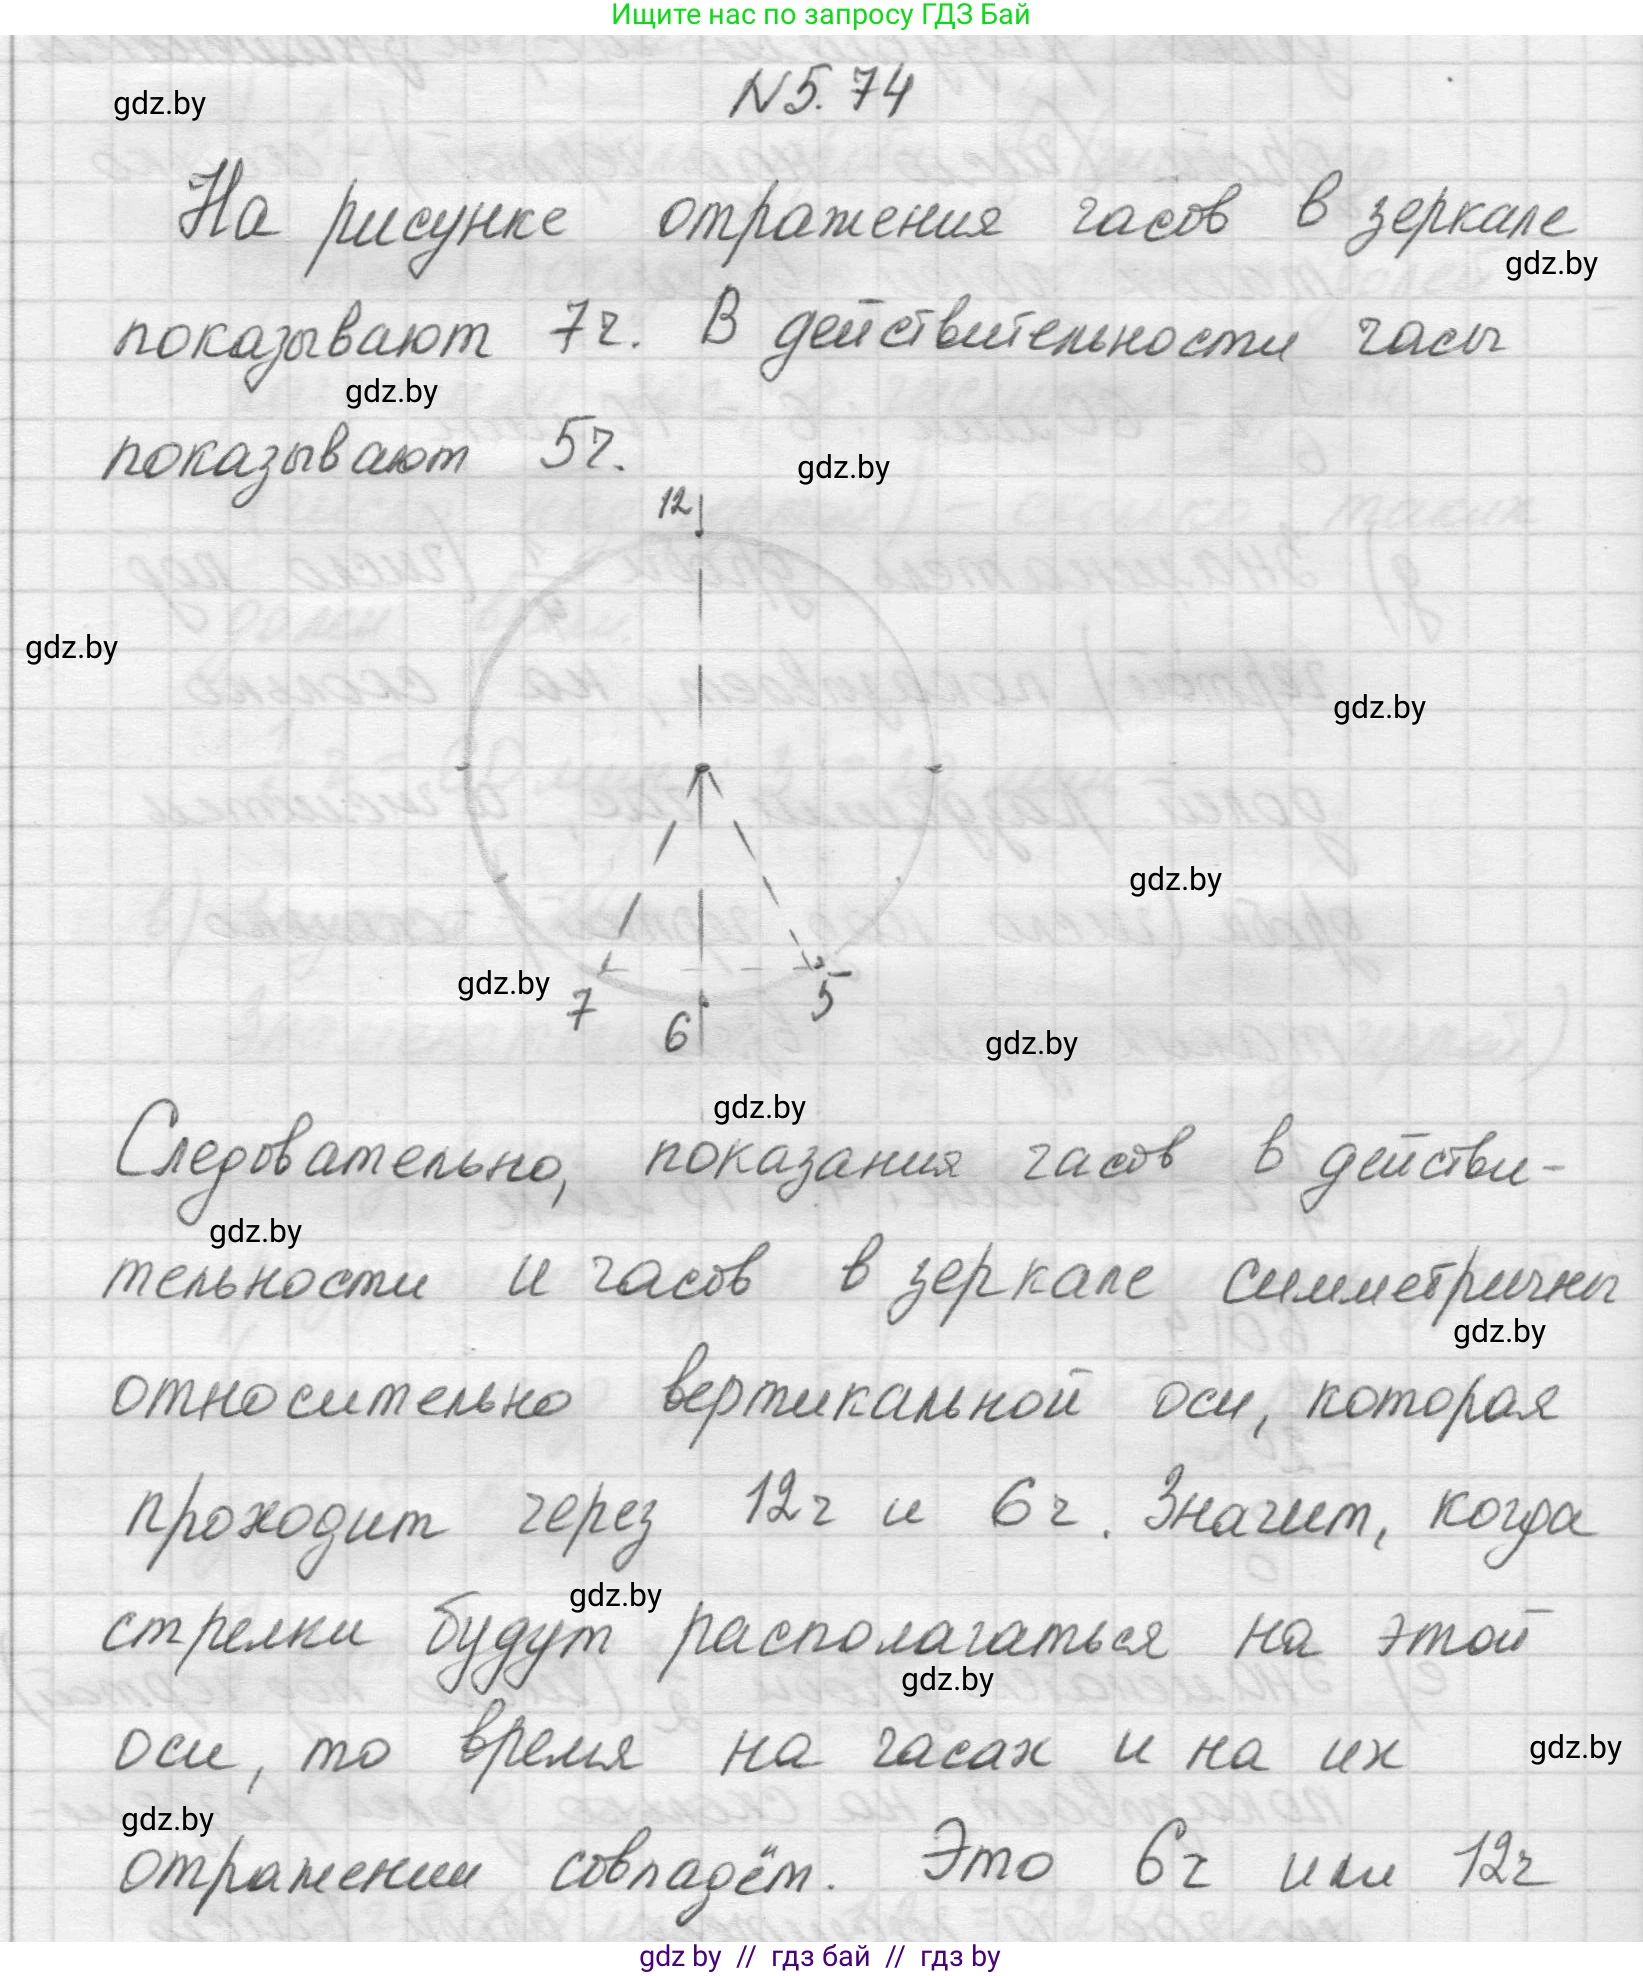 Ищите нас по запросу ГДЗ Бай
N 5.74
gdz.by
На рисунке отражения часов в зеркале
gdz.by
показывают 7ч. В действительности часы
gdz.by
показывают 5ч.
gdz.by
12
gdz.by
gdz.by
gdz.by
gdz.by
7 6 5
gdz.by
gdz.by
Следовательно, показания часов в действи-
gdz.by
тельности и часов в зеркале симметричны
gdz.by
относительно вертикальной оси, которая
проходит через 12ч и 6ч. Значит, когда
gdz.by
стрелки будут располагаться на этой
gdz.by
оси, то время на часах и на их
gdz.by
gdz.by
отражении совпадём. Это 6ч или 12ч
gdz by // гдз бай // гдз by